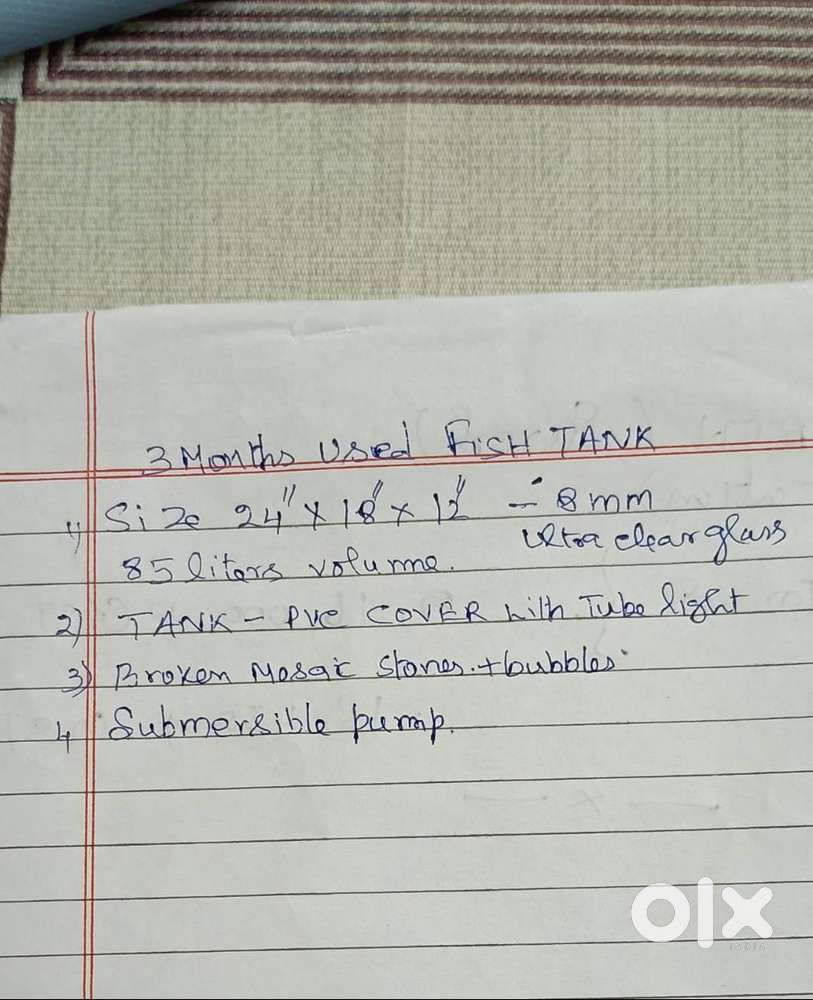 3 Months Used FISH TANK
1) Size 24" x 18" x 12" - 8mm
Ultra clear glass
85 liters volume.
2) TANK - PVC COVER with Tube light
3) Broken Mosaic Stones. + bubbles.
4 Submersible pump.
olx
INDIA